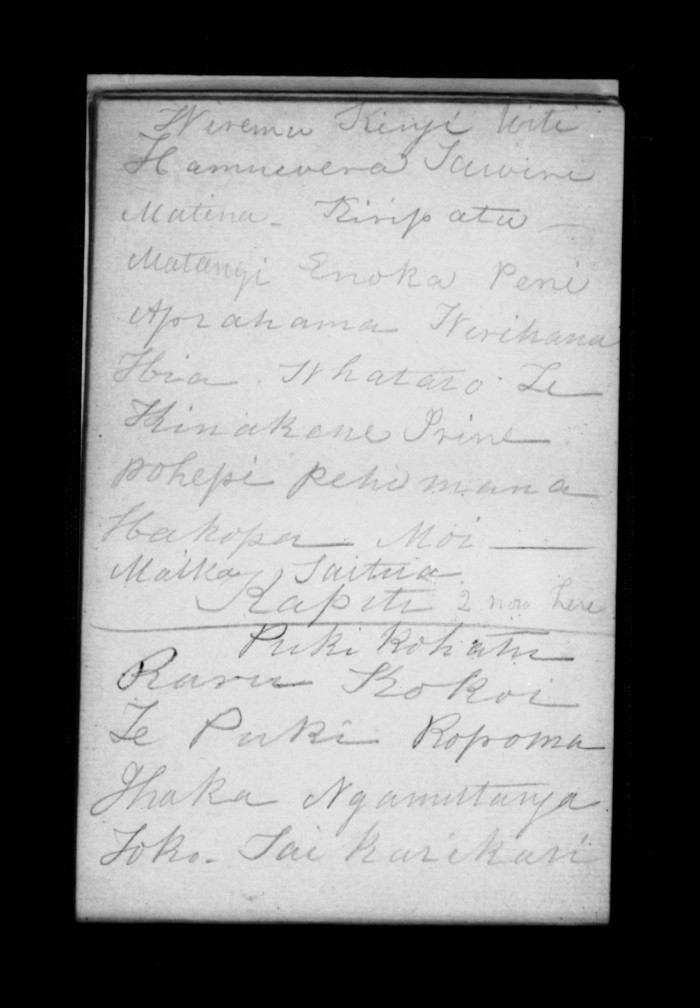 Wiremu Kingi Witi
Hamuevera Tawiri
Matina - Kiripata -
Matangi Enoka Peni
Aprahama Wirihana
Hia . Whataro . Te
Kinakene Irine
Pohepi Pehimana
Hakopa . Moi -
Maika Taitua
Kapiti 2 now here
Puki Kohatu
Raru Kokoi
Te Puki Ropoma
Ihaka Ngamutanga
Toko - Tai Karikari